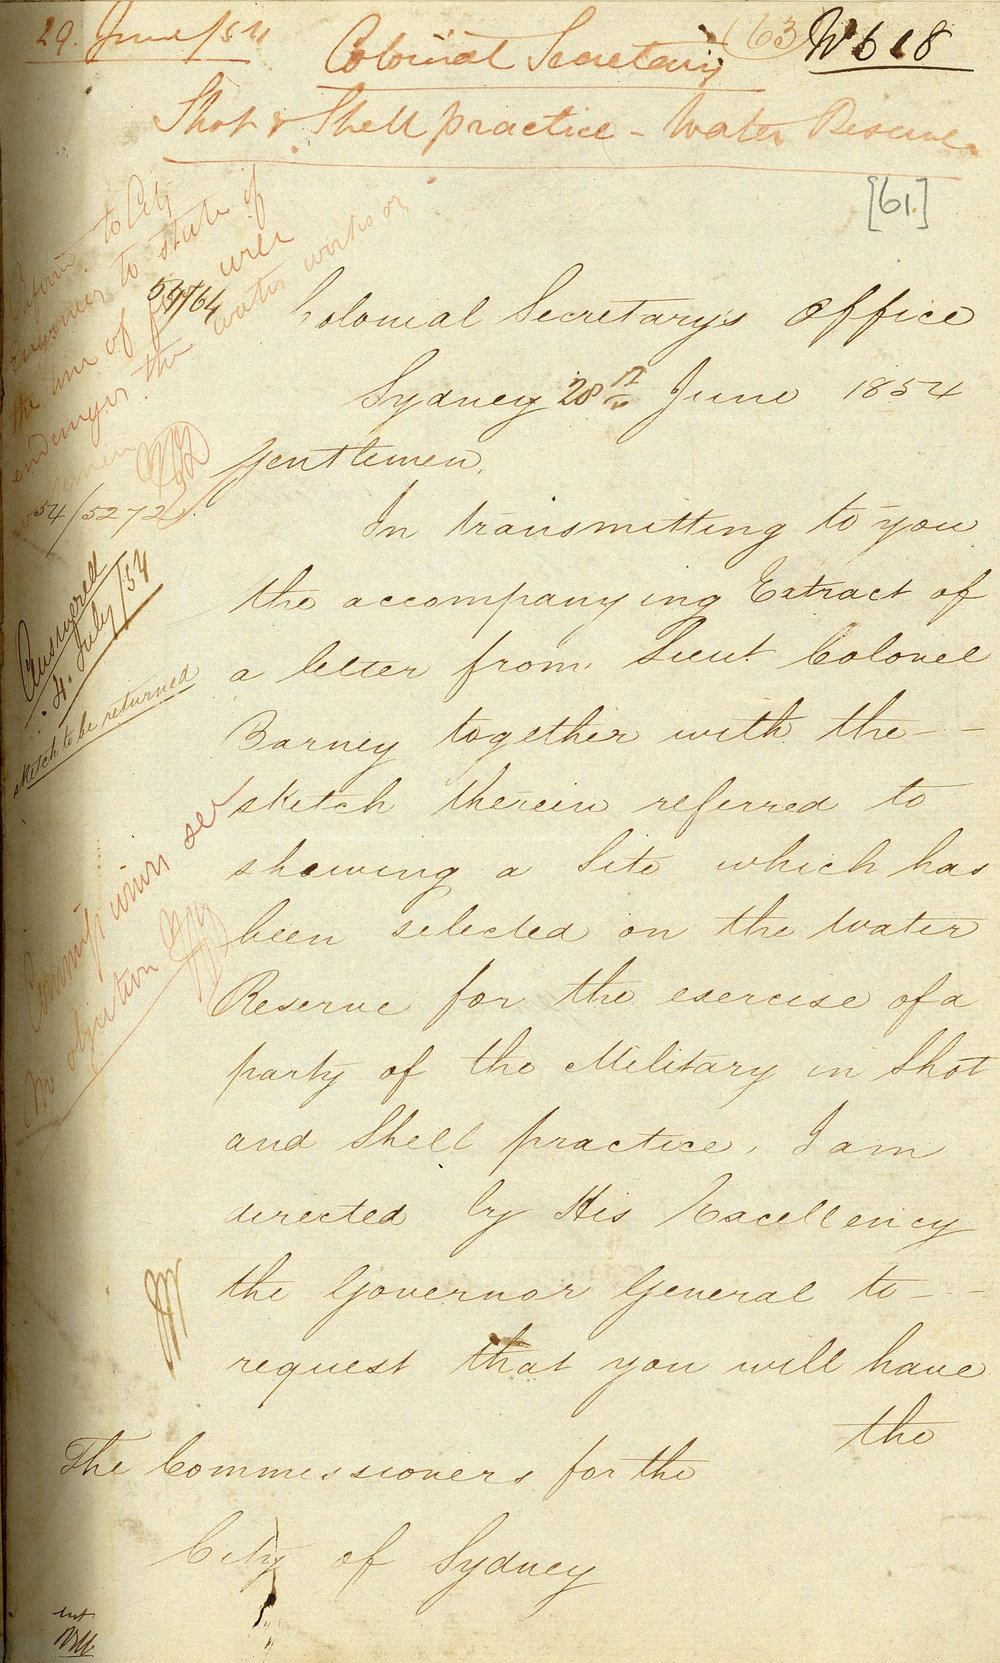 29. June/54
(63)
No 618
Colonial Secretary
Shot & Shell practice - Water Reserve
[61]
Refer to City
Engineer to state if
the line of fire will
endanger the water works or
54/64
54/5272
Answered
4. July/54
sketch to be returned
Commissioners see
no objection
Colonial Secretary's Office
Sydney 28th June 1854
Gentlemen,
In transmitting to you
the accompanying Extract of
a letter from Lieut Colonel
Barney together with the - -
sketch therein referred to
shewing a Site which has
been selected on the Water
Reserve for the exercise of a
party of the Military in Shot
and Shell practice, I am
directed by His Excellency
the Governor General to - -
request that you will have
the
The Commissioners for the
City of Sydney
ent